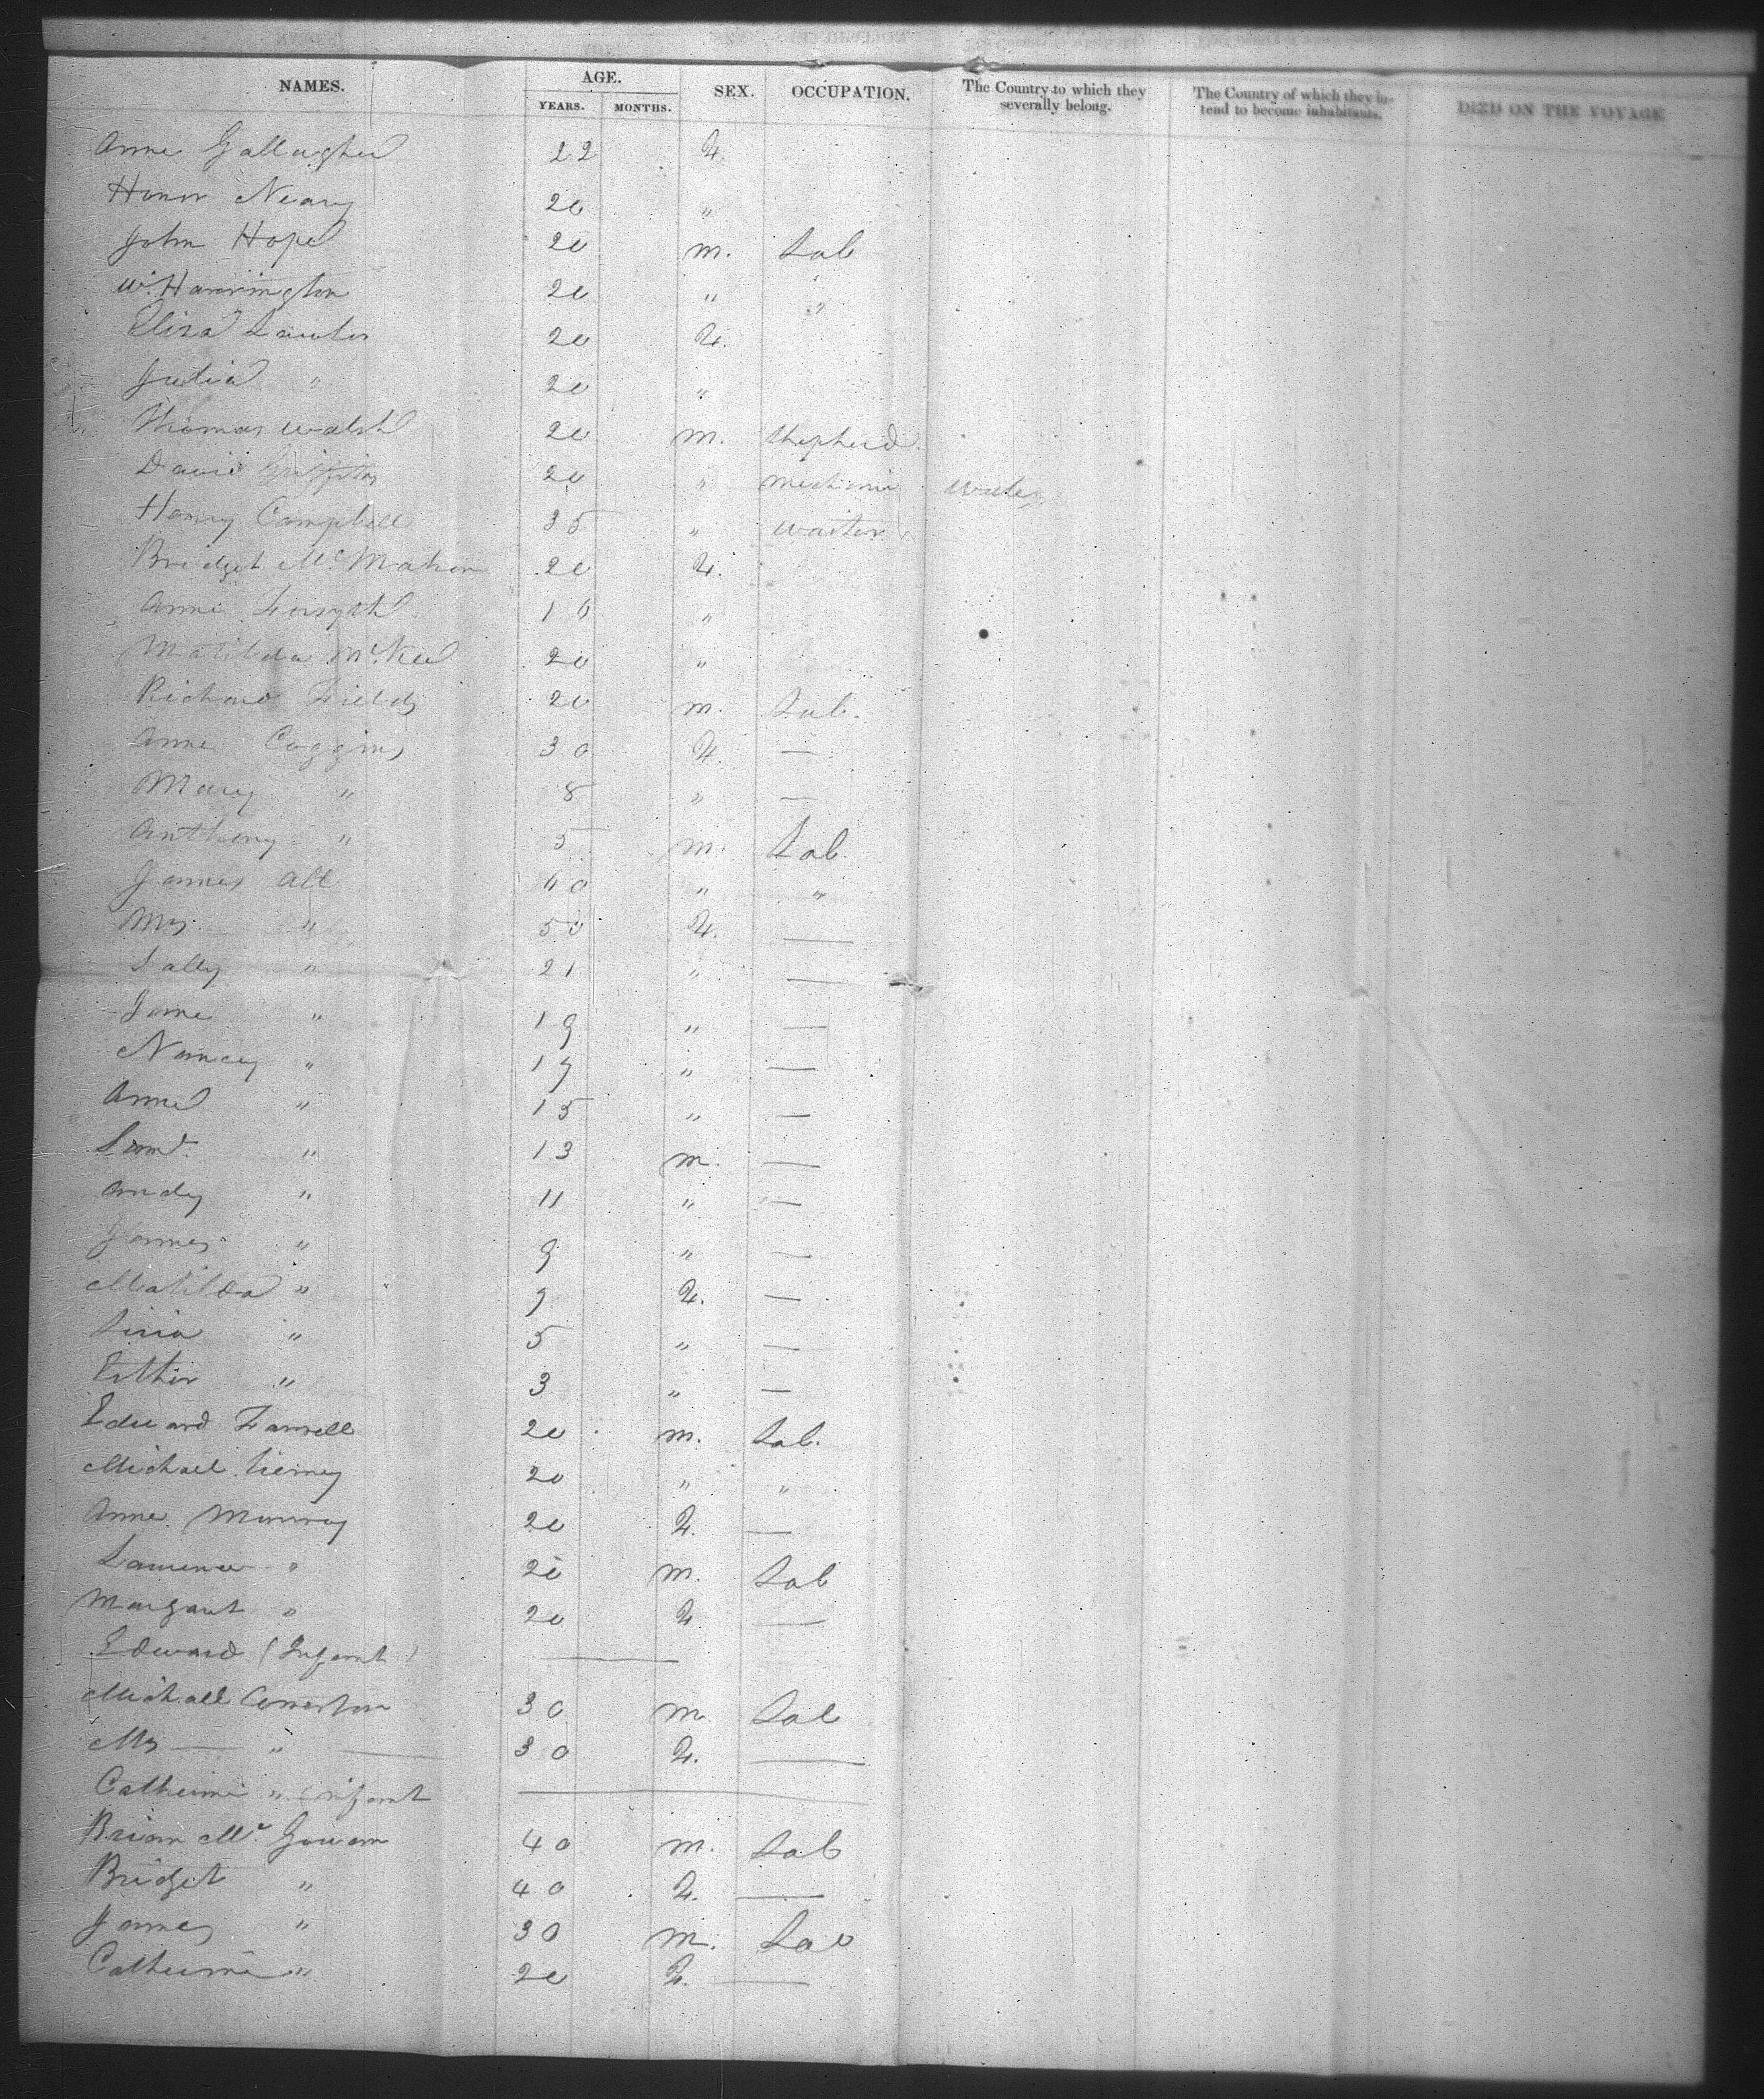 NAMES. AGE. SEX. OCCUPATION. The Country to which they severally belong. The Country of which they intend to become inhabitants. DIED ON THE VOYAGE
YEARS. MONTHS.
Anne Gallagher 22 F.
Honor Neary 20 "
John Hope 20 m. Lab
Wm. Harrington 20 " "
Eliza Lawler 20 F.
Julia " 20 "
Thomas Walsh 20 m. Shepherd
David Griffiths 20 " Mechanic Wales
Henry Campbell 35 " Waiter
Bridget McMahon 20 F.
Anne Forsyth 10 "
Matilda McKee 20 "
Richard Fields 20 m. Lab.
Anne Coggins 30 F. —
Mary " 8 " —
Anthony " 5 m. Lab.
James All 40 " "
Mrs. " 50 F. —
Sally " 21 " —
Jane " 19 " —
Nancy " 17 " —
Anne " 15 " —
Saml. " 13 m. —
Andy " 11 " —
James " 9 " —
Matilda " 7 F. —
" 5 " —
Esther " 3 " —
Edward Farrell 20 m. Lab.
Michael Tierney 20 " "
Anne Murray 20 F. —
Lawrence " 20 m. Lab
Margaret " 20 F. —
Edward (Infant) —
Michall 30 m. Lab
Mrs — " — 30 F. —
Catherine " infant —
Brian McGowan 40 m. Lab
Bridget " 40 F. —
James " 30 m. Lab
Catherine " 20 F. —